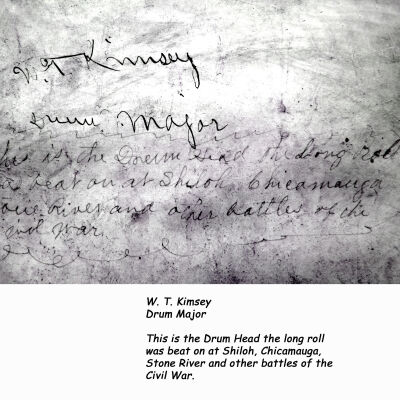 W. T. Kimsey
Drum Major
his is the Drum Head the Long Roll
was beat on at Shiloh, Chicamauga
one River and other battles of the
ivil War.
W. T. Kimsey
Drum Major
This is the Drum Head the long roll
was beat on at Shiloh, Chicamauga,
Stone River and other battles of the
Civil War.